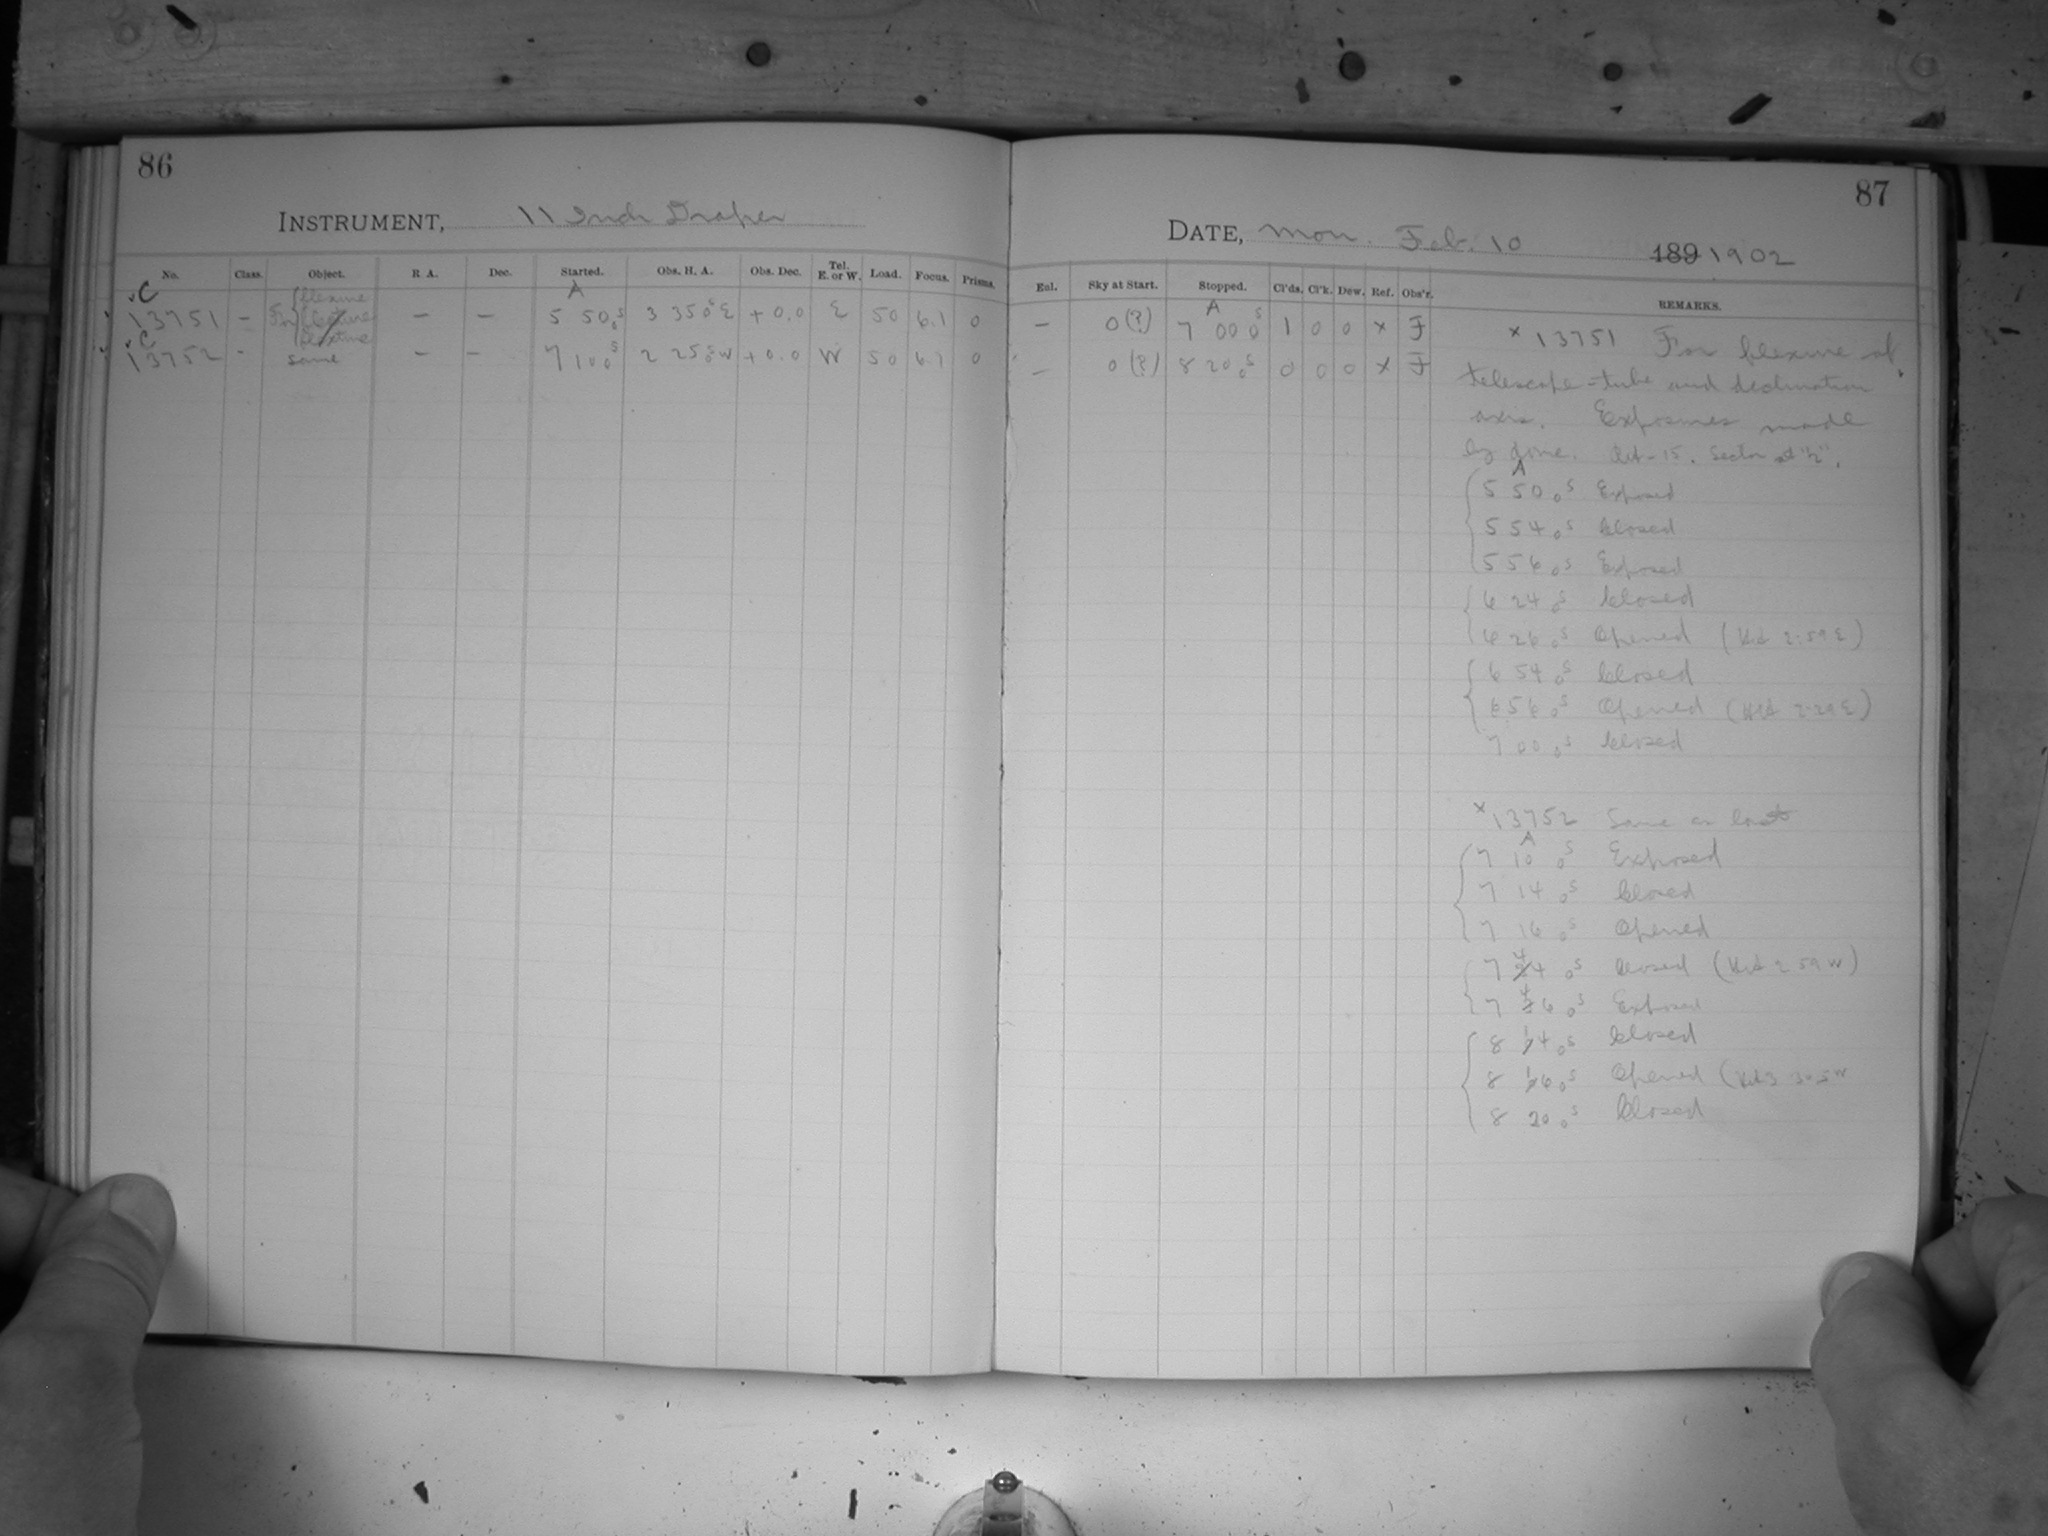 86
INSTRUMENT, 11 Inch Draper
No. Class. Object. R A. Dec. Started. Obs. H. A. Obs. Dec. Tel. E. or W. Load. Focus. Prisms.
C A
13751 – flexure – – 5 50 0s 3 35 0s E + 0.0 E 50 6.1 0
C
13752 - same – – 7 10 0s 2 25 0s W + 0.0 W 50 6.1 0
87
DATE, Mon. Feb. 10 189 1902
Enl. Sky at Start. Stopped. Cl'ds. Cl'k. Dew. Ref. Obs'r. REMARKS.
– 0 (?) A 7 00 0s 1 0 0 x F
– 0 (?) 8 20 0s 0 0 0 x F
x 13751 For flexure of
telescope-tube and declination
axis. Exposures made
by dome. Sector at
A
5 50 0s Exposed
5 54 0s Closed
5 56 0s Exposed
6 24 0s Closed
6 26 0s Opened ( 2:59 E)
6 54 0s Closed
6 56 0s Opened ( 2:29 E)
7 00 0s Closed
x 13752 Same as last
A
7 10 0s Exposed
7 14 0s Closed
7 16 0s Opened
7 44 0s Closed ( 2 59 W)
7 46 0s Exposed
8 14 0s Closed
8 16 0s Opened (
8 20 0s Closed